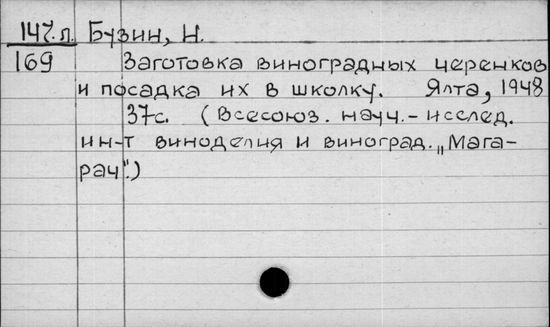 147.л. Бузин, Н.
169 Заготовка виноградных черенков
и посадка их в школку. Ялта, 1948
37с. (Всесоюз. науч.-исслед.
ин-т виноделия и виноград. „Мага-
рач".)